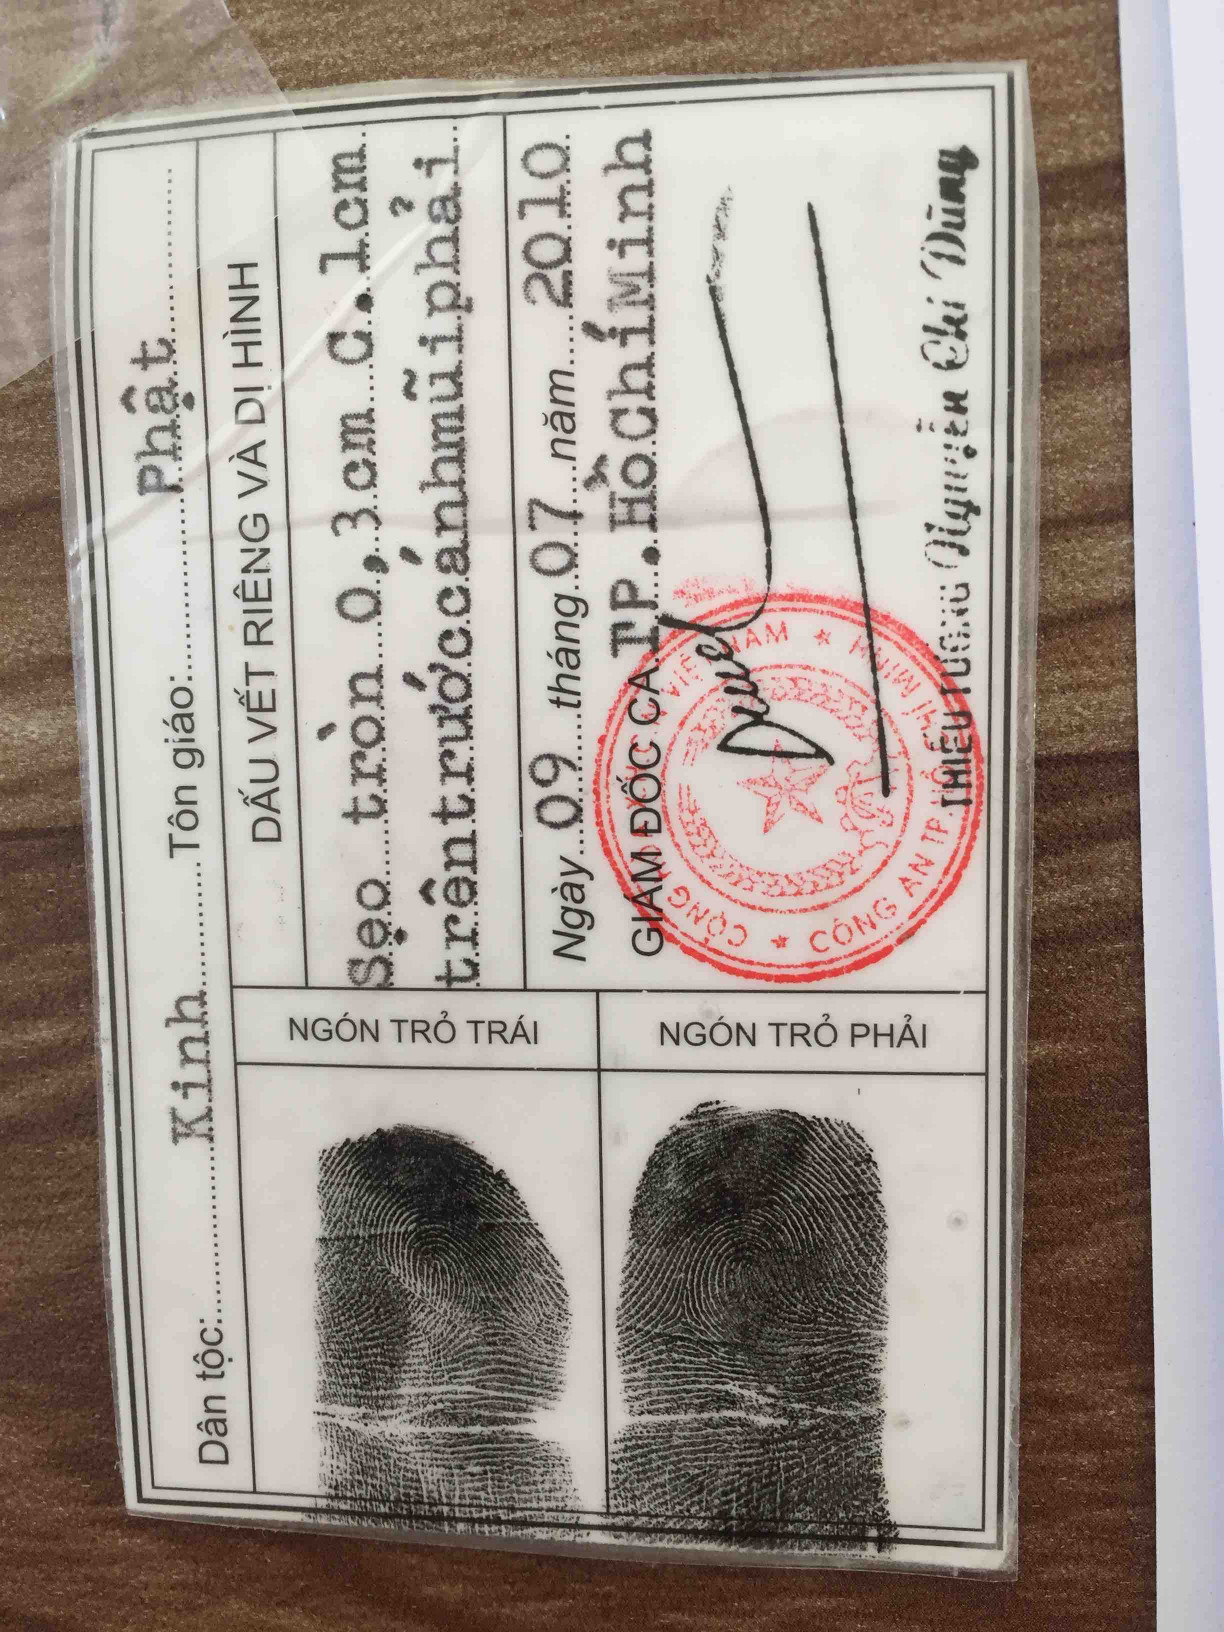 Dân tộc: Kinh Tôn giáo: Phật
DẤU VẾT RIÊNG VÀ DỊ HÌNH
Sẹo tròn 0,3cm C.1cm
trên trước cánh mũi phải
Ngày 09 tháng 07 năm 2010
GIÁM ĐỐC CA.TP.Hồ Chí Minh
VIỆT NAM
CÔNG AN TP.
THIẾU TƯỚNG Nguyễn Chí Dũng
NGÓN TRỎ TRÁI
NGÓN TRỎ PHẢI